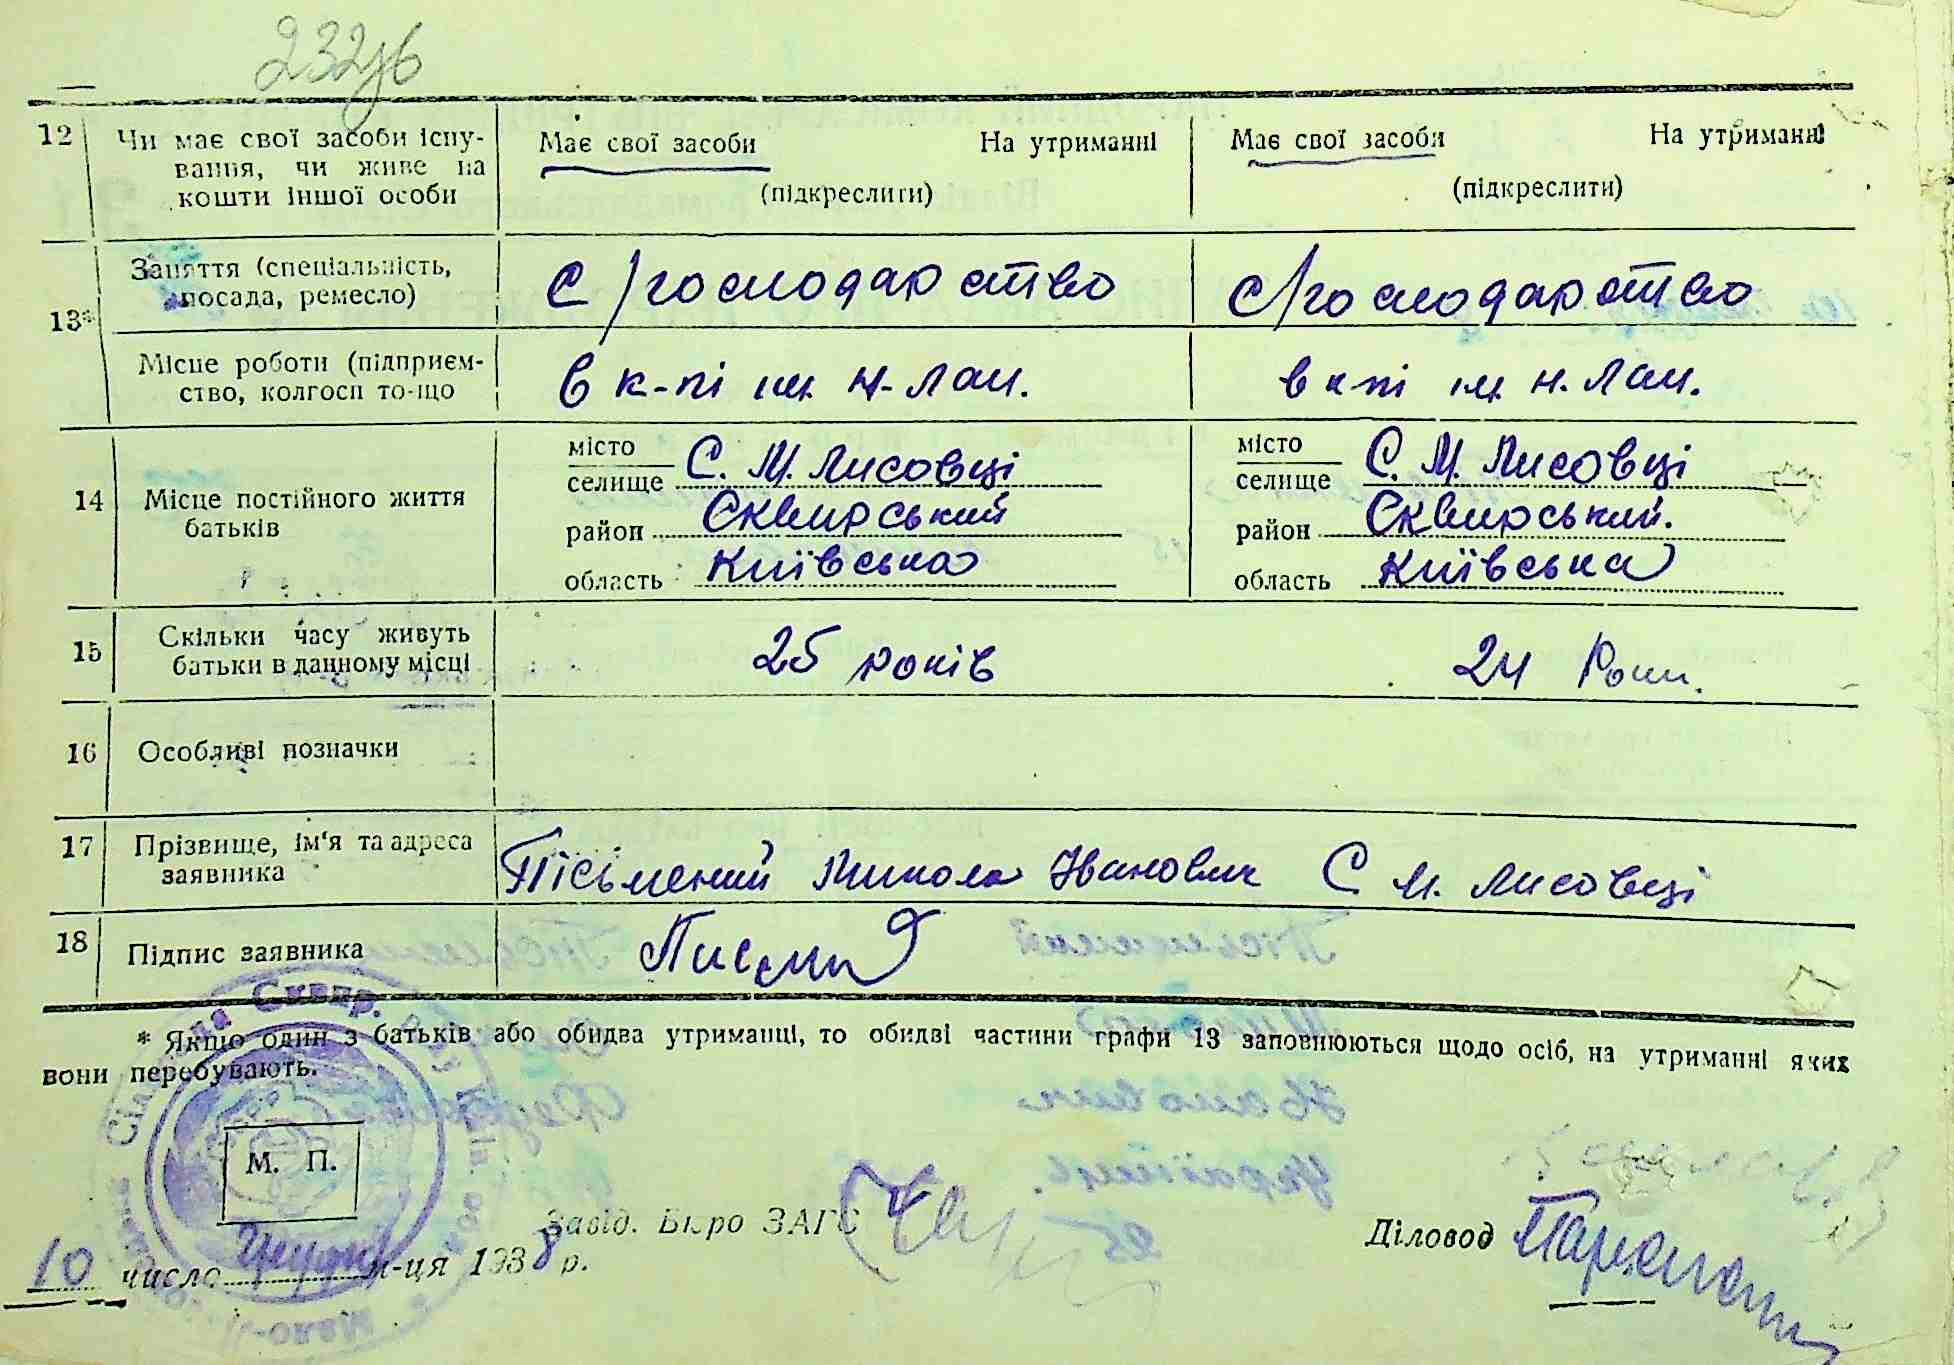 232 зв
12 Чи має свої засоби існу-
вання, чи живе на
кошти іншої особи
Має свої засоби На утриманні
(підкреслити)
Має свої засоби На утриманні
(підкреслити)
13* Заняття (спеціальність,
посада, ремесло)
С/господарство
с/господарство
Місце роботи (підприєм-
ство, колгосп то-що
в к-пі ім. Н-Лан.
в к-пі ім. Н. Лан.
14 Місце постійного життя
батьків
місто
селище С. М. Лисовці
район Сквирський
область Київська
місто
селище С. М. Лисовці
район Сквирський.
область Київська
15 Скільки часу живуть
батьки в данному місці
25 років
24 Роки.
16 Особливі позначки
17 Прізвище, ім'я та адреса
заявника
Пісьмений Микола Іванович С М. Лисовці
18 Підпис заявника
* Якщо один з батьків або обидва утриманці, то обидві частини графи 13 заповнюються щодо осіб, на утриманні яких
вони перебувають.
М. П.
Завід. Бюро ЗАГС
Діловод
10 число грудня м-ця 1938 р.